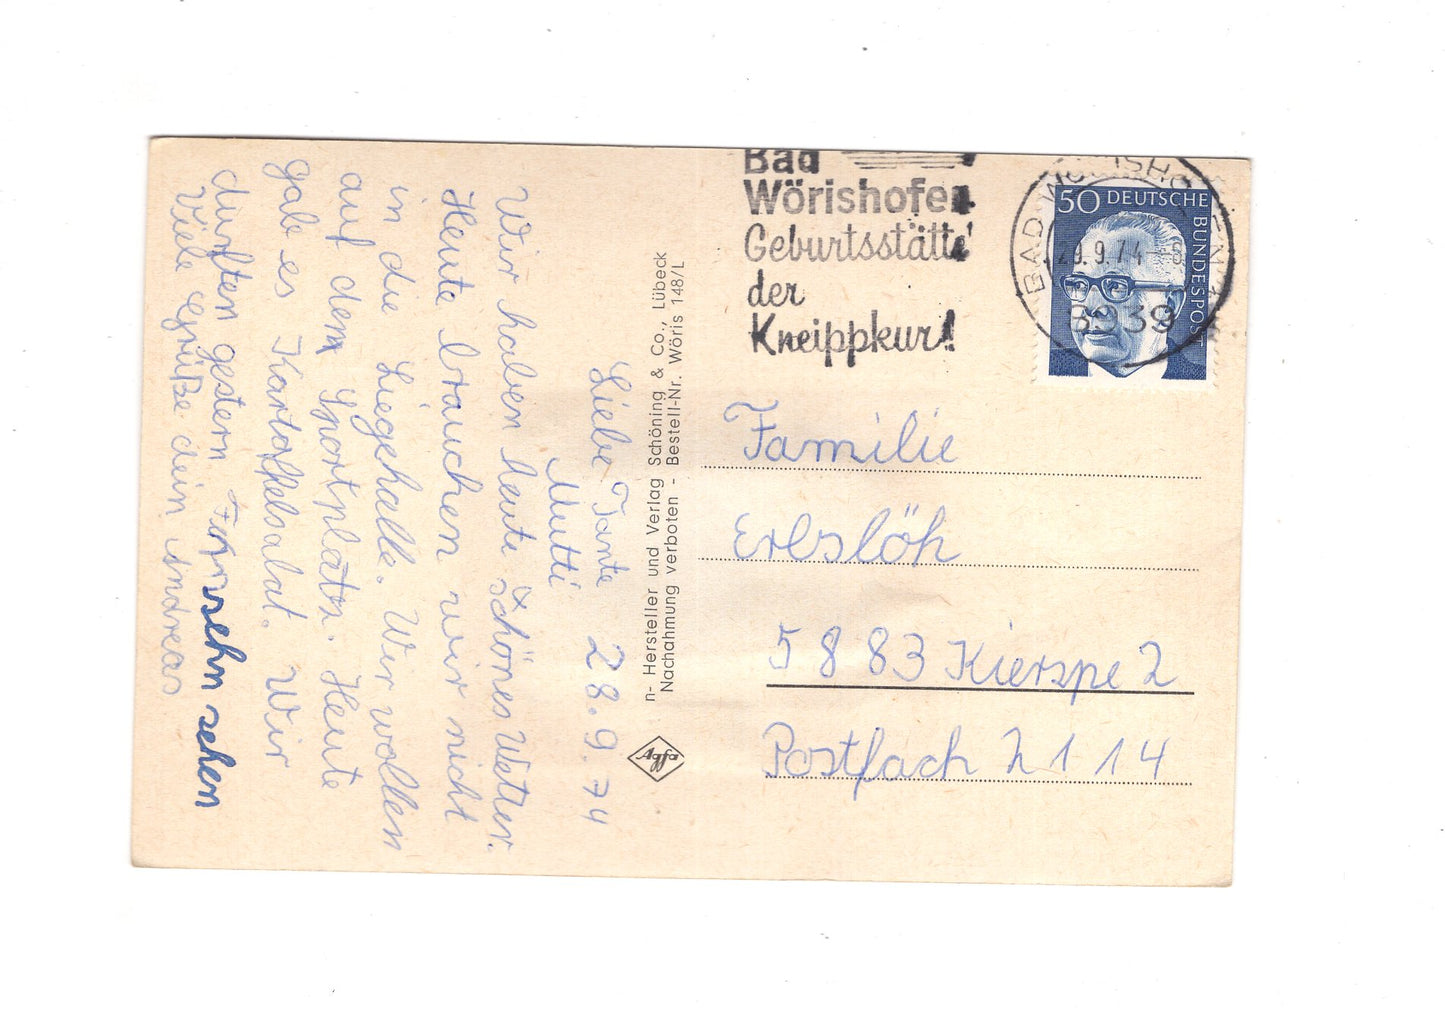 Liebe Tante 28.9.74
Mutti
Wir haben heute schönes Wetter.
Heute brauchen wir nicht
in die Liegehalle. Wir wollen
auf dem Sportplatz. Heute
gab es Kartoffelsalat. Wir
durften gestern Fernsehn sehen
Viele Grüße dein Andreas
n- Hersteller und Verlag Schöning & Co., Lübeck
Nachahmung verboten - Bestell-Nr. Wöris 148/L
Agfa
Bad
Wörishofen
Geburtsstätte
der
Kneippkur!
BAD WÖRISHOFEN 1
9.74
8939
50 DEUTSCHE BUNDESPOST
Familie
Erbslöh
5883 Kierspe 2
Postfach 2114